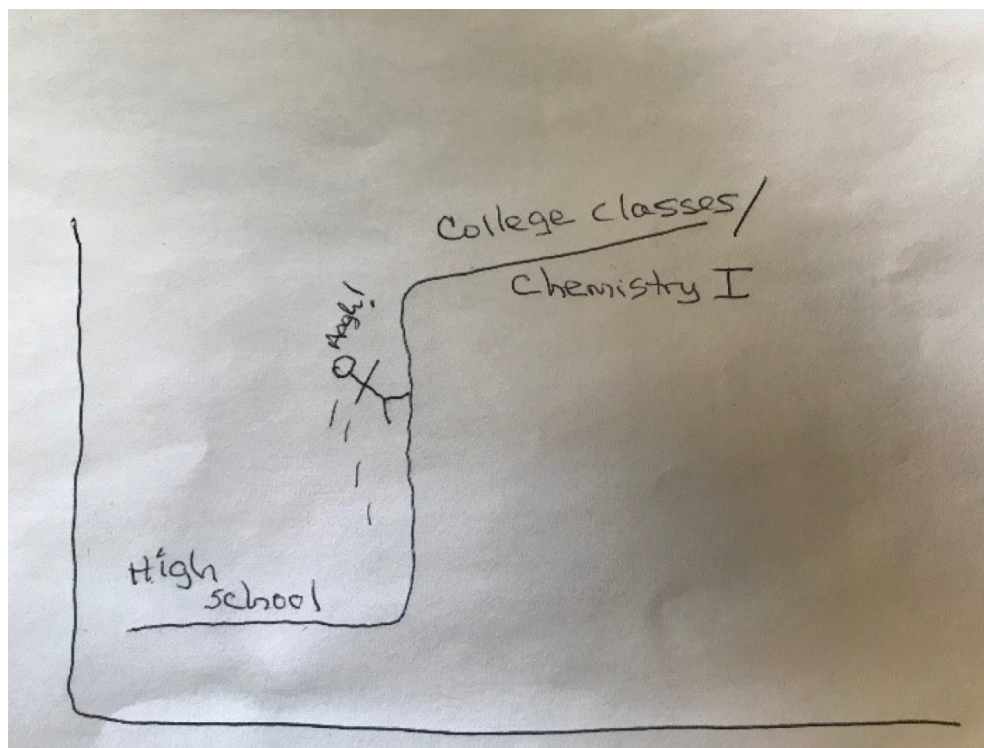 College classes/
Chemistry I
Aagh!
High
school